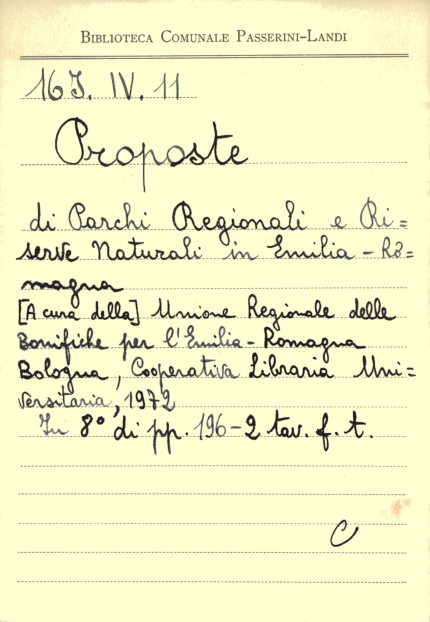 BIBLIOTECA COMUNALE PASSERINI-LANDI
16J. IV. 11
Proposte
di Parchi Regionali e Ri=
serve Naturali in Emilia - Ro=
magna
[A cura della] Unione Regionale delle
Bonifiche per l'Emilia - Romagna
Bologna, Cooperativa Libraria Uni=
versitaria, 1972
In 8° di pp. 196-2 tav. f. t.
C